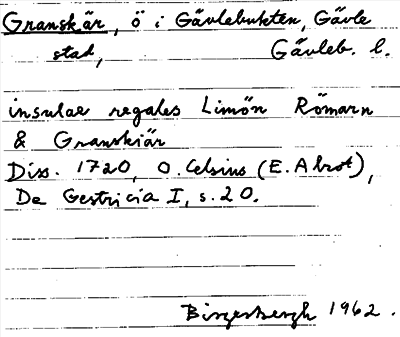 Granskär, ö i Gävlebukten, Gävle
stad, Gävleb. l.
insulae regales Limön Römarn
& Granskiär
Diss. 1720, O. Celsius (E. Abrot),
De Gestricia I, s. 20.
Birgersbergh 1962.